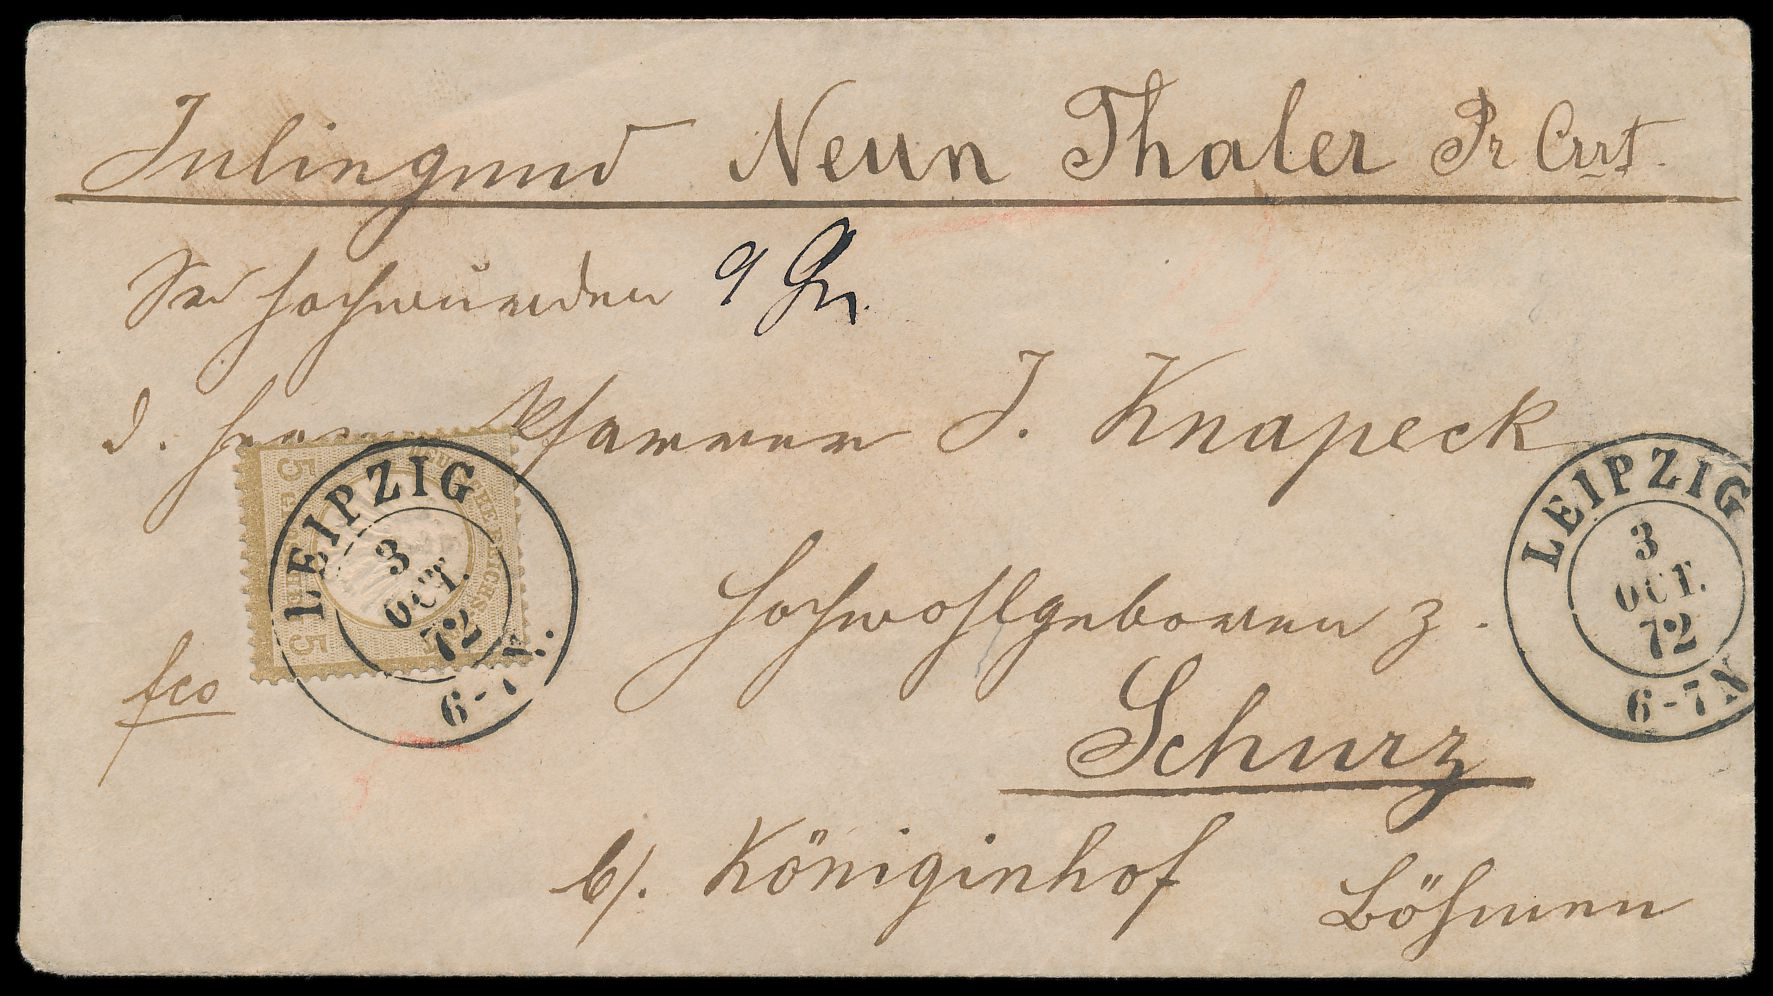 Inliegend Neun Thaler Pr Crrt.
Sr Hochwürden 9 Gr.
d. Herrn Pfarrer J. Knapeck
Hochwohlgeboren z.
fco
Schurz
b/. Königinhof
Böhmen
LEIPZIG
3
OCT.
72
6-7 N.
LEIPZIG
3
OCT.
72
6-7 N
5
5